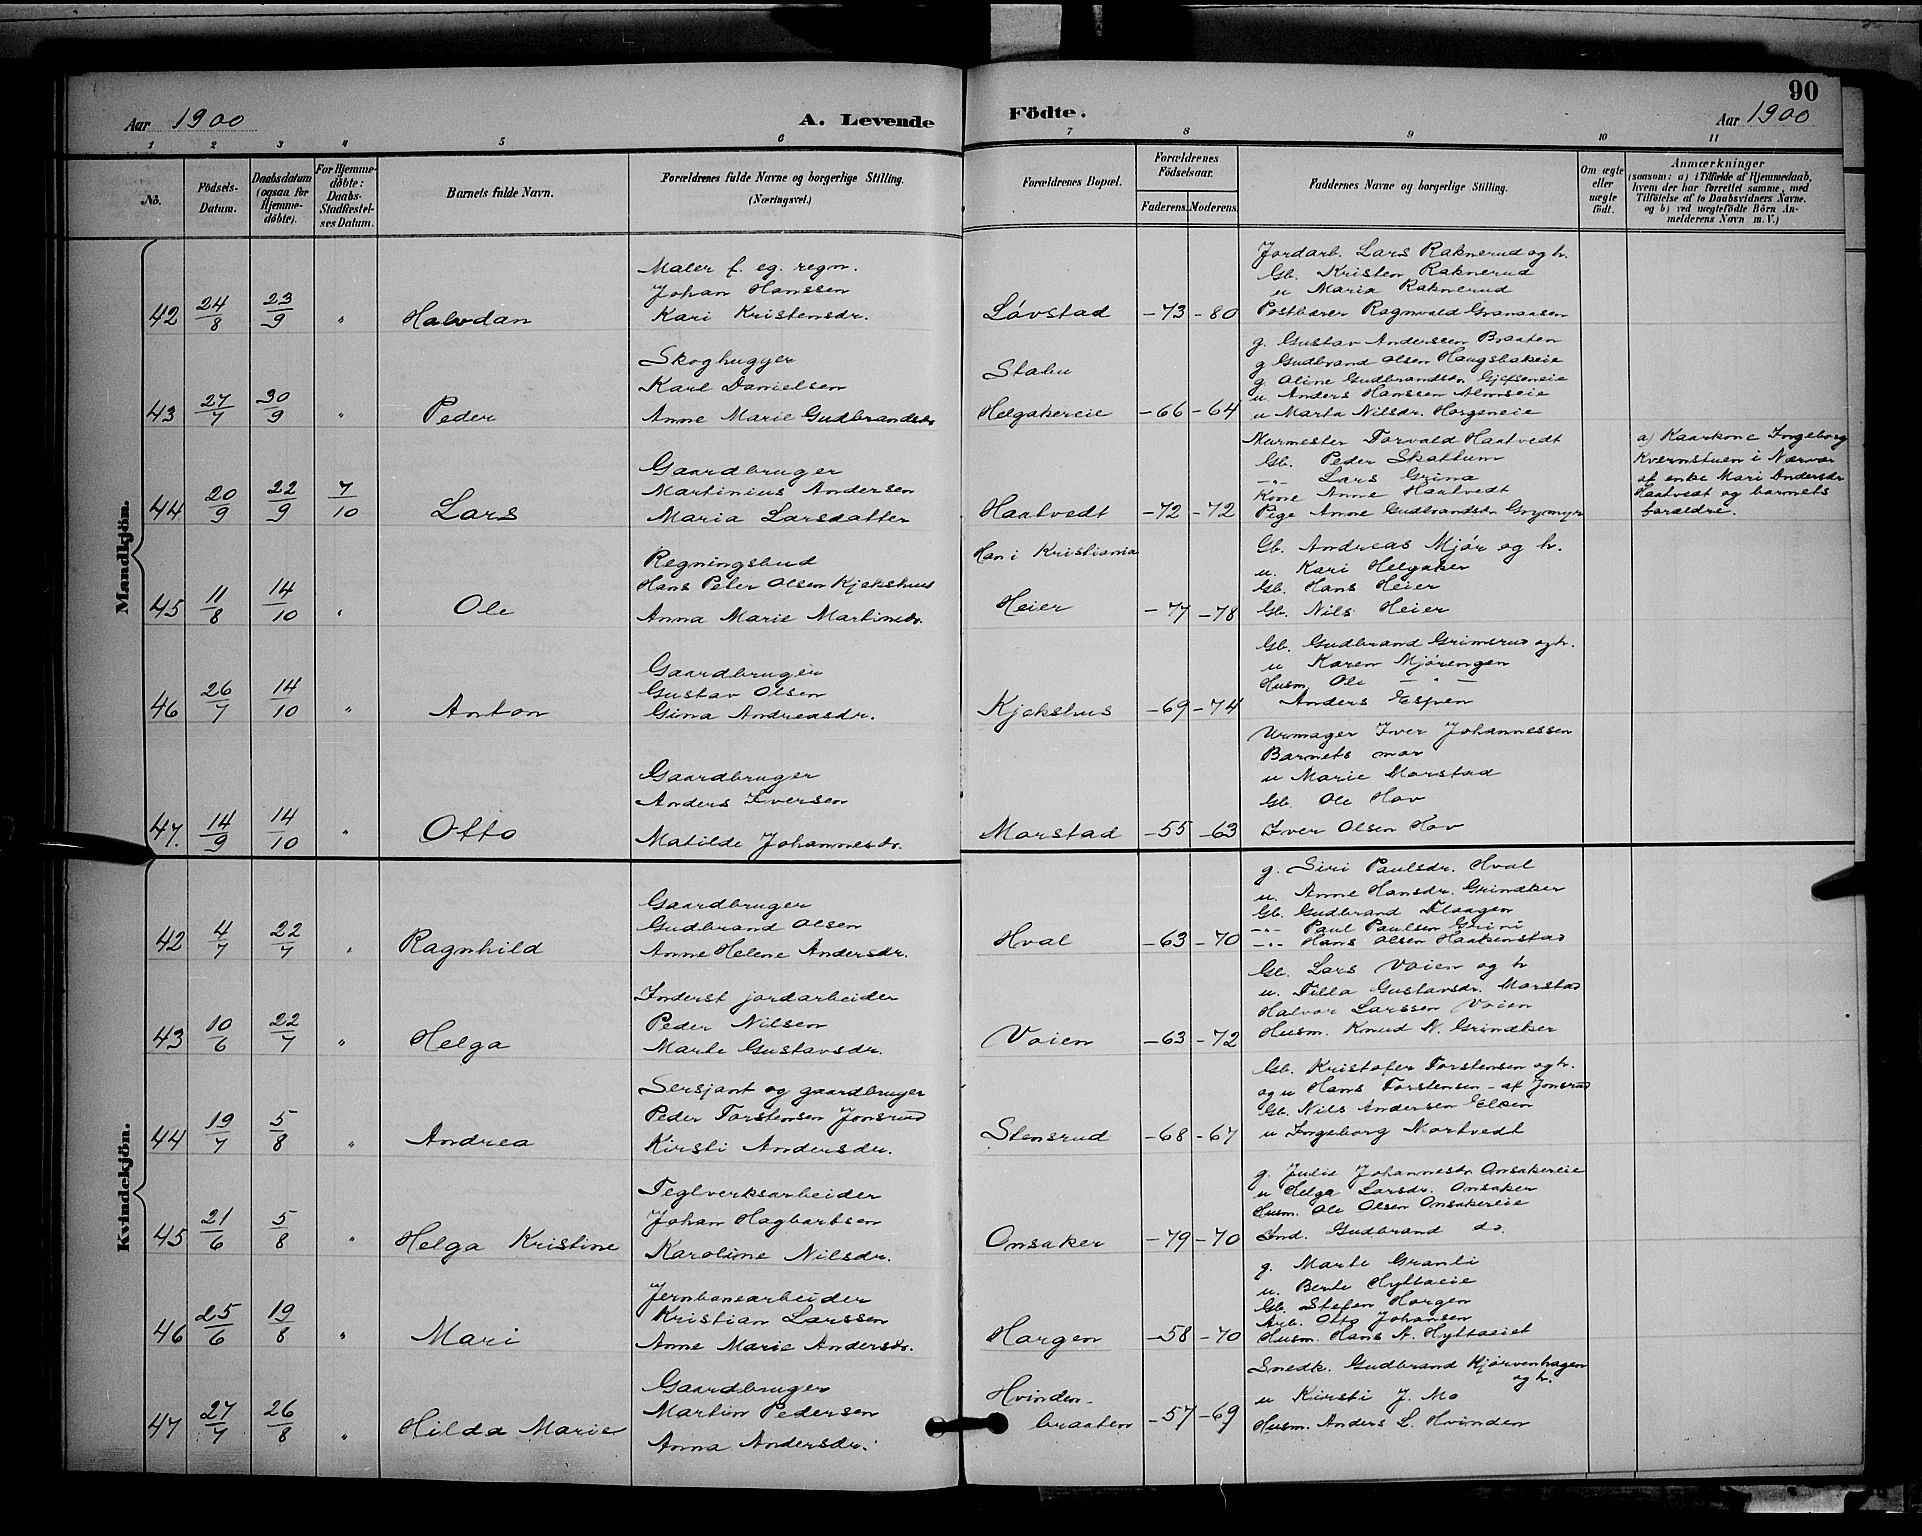 90
Aar 1900 A. Levende Födte. Aar 1900
1 2 3 4 5 6 7 8 9 10 11
No.
Födsels-Datum.
Daabsdatum (ogsaa for Hjemmedöbte).
For Hjemmedöbte: Daabs-Stadfæstelses Datum.
Barnets fulde Navn.
Forældrenes fulde Navne og borgerlige Stilling. (Næringsvei.)
Forældrenes Bopæl.
Forældrenes Födselsaar.
Faderens. Moderens.
Faddernes Navne og borgerlige Stilling.
Om ægte eller uægte födt.
Anmærkninger
(saasom: a) i Tilfælde af Hjemmedaab,
hvem der har forrettet samme, med
Tilföielse af to Daabsvidners Navne.
og b) ved uægtefödte Börn An-
melderens Navn m. V.)
Mandkjön.
42 24/8 23/9 " Halvdan
Maler f. eg. regn.
Johan Hanssen
Kari Kristensdr.
Løvstad -73 -80
Jordarb. Lars Raknerud og h.
Gb. Kristen Raknerud
u Maria Raknerud
Postbærer Ragnvald Granaasen
43 27/7 30/9 " Peder
Skoghugger
Karl Danielsen
Anne Marie Gudbrandsdr
Stabu
Helgakereie -66 -64
g. Gustav Anderssen Braaten
g Gudbrand Olsen Haugsbakeie
g Oline Gudbrandsdr. Gjefseneie
u. Anders Hanssen Almseie
u Marta Nilsdr. Horgeneie
44 20/9 22/9 7/10 Lars
Gaardbruger
Martinius Andersen
Maria Larsdatter
Haatvedt -72 -72
Murmester Torvald Haatvedt
Gb. Peder Skattum
-"- Lars Grina
Kone Anne Haatvedt
Pige Anne Gudbrandsdr. Grymyr
a) Kaarkone Ingeborg
Kvernstuen i Nærvær
af enke Mari Andersdr
Haatvedt og barnets
forældre.
45 11/8 14/10 " Ole
Regningsbud
Hans Peter Olsen Kjekshus
Anna Marie Martinsdr.
Han i Kristiania
Heier -77 -78
Gb. Andreas Mjør og h.
u. Kari Helgaker
Gb. Hans Heier
Gb. Nils Heier
46 26/7 14/10 " Anton
Gaardbruger
Gustav Olsen
Gina Andreasdr.
Kjekshus -69 -74
Gb. Gudbrand Grimsrud og h.
u Karen Mjørengen
Husm. Ole - " -
Anders Espen
47. 14/9 14/10 " Otto
Gaardbruger
Anders Iversen
Matilde Johannesdr.
Morstad -55 -63
Urmager Iver Johannessen
Barnets mor
u Marie Morstad
Gb. Ole Hov
Iver Olsen Hov
Kvindekjön.
42 4/7 22/7 " Ragnhild
Gaardbruger
Gudbrand Olsen
Anne Helene Andersdr.
Hval -63 -70
g. Siri Paulsdr. Hval
u. Anne Hansdr. Grindker
Gb. Gudbrand Flaagen
-"- Paul Paulsen Grini
-"- Hans Olsen Haakenstad
43 10/6 22/7 " Helga
Inderst jordarbeider
Peder Nilsen
Marte Gustavsdr.
Voien -63 -72
Gb. Lars Voien og h
u. Tilla Gustavsdr. Morstad
Halvor Larssen Voien
Husm. Knud N. Grindker
44 19/7 5/8 " Andrea
Sersjant og gaardbruger
Peder Torstensen Jonsrud
Kirsti Andersdr.
Stensrud -68 -67
Gb. Kristofer Torstensen og h.
og u Hans Torstensen - af Jonsrud
Gb. Nils Andersen Elken
u Ingeborg Mortvedt
45 21/6 5/8 " Helga Kristine
Teglverksarbeider
Johan Hagbartsen
Karoline Nilsdr.
Onsaker -79 -70
g. Julie Johannesdr. Onsakereie
u Helga Larsdr. Onsaker
Husm. Ole Olsen Onsakereie
Ind. Gudbrand do.
46 25/6 19/8 " Mari
Jernbanearbeider
Kristian Larssen
Anne Marie Andersdr.
Horgen -58 -70
g. Marte Granli
u. Berte Hyttaeie
Gb. Stefen Horgen
Arb. Otto Johansen
Husm. Hans A. Hyttaeiet
47 27/7 26/8 " Hilda Marie
Gaardbruger
Martin Pedersen
Anna Andersdr.
Hvinden-
braaten -57 -69
Snedk. Gudbrand Kjørvenhagen
og h.
u Kirsti J. Mo
Husm. Anders L. Hvinden